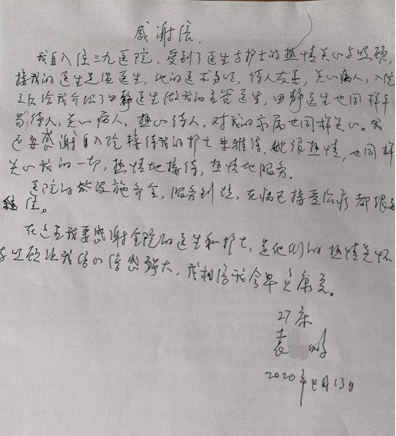 感谢信.
我自入住三九医院,受到了医生与护士的热情关心与照顾,
接我的医生是温医生,她的医术高明,待人友善,关心病人,入院
之后给我介绍了田静医生做我的主管医生,田静医生也同样平
易待人,关心病人,热心待人,对我的家属也同样关心。我
还要感谢自入院接待我的护士朱雅倩,她很热情,也同样
关心我的一切,热情地接待,热情地服务。
医院的设施齐全,服务到位,在病已接受治疗都很
在这里我要感谢全院的医生和护士,是他们的热情关怀
与照顾让我倍感强大,我相信我会早日康复。
27床
袁 明
2020年4月13日